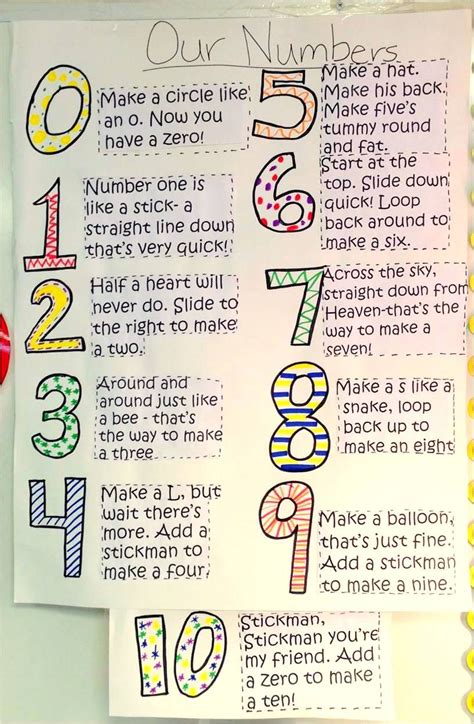 Our Numbers
0
Make a circle like
an o. Now you
have a zero!
1
Number one is
like a stick- a
straight line down
that's very quick!
2
Half a heart will
never do. Slide to
the right to make
a two.
3
Around and
around just like
a bee - that's
the way to make
a three
4
Make a L, but
wait there's
more. Add a
stickman to
make a four.
5
Make a hat.
Make his back.
Make five's
tummy round
and fat.
6
Start at the
top. Slide down
quick! Loop
back around to
make a six.
7
Across the sky,
straight down from
Heaven-that's the
way to make a
seven!
8
Make a s like a
snake, loop
back up to
make an eight
9
Make a balloon,
that's just fine.
Add a stickman
to make a nine.
10
Stickman,
Stickman you're
my friend. Add
a zero to make
a ten!